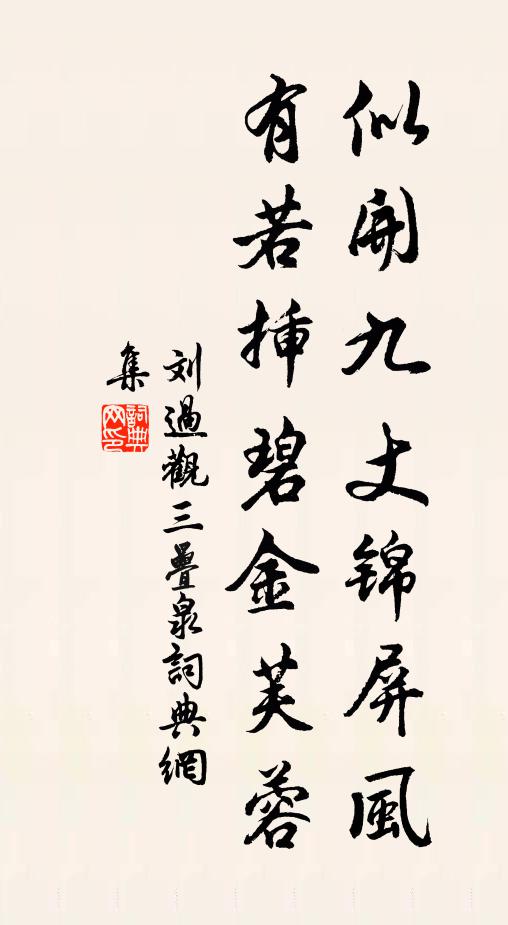 似開九丈锦屏風
有若挿碧金芙蓉
刘過觀三疊泉詞典網
集
詞典
网印